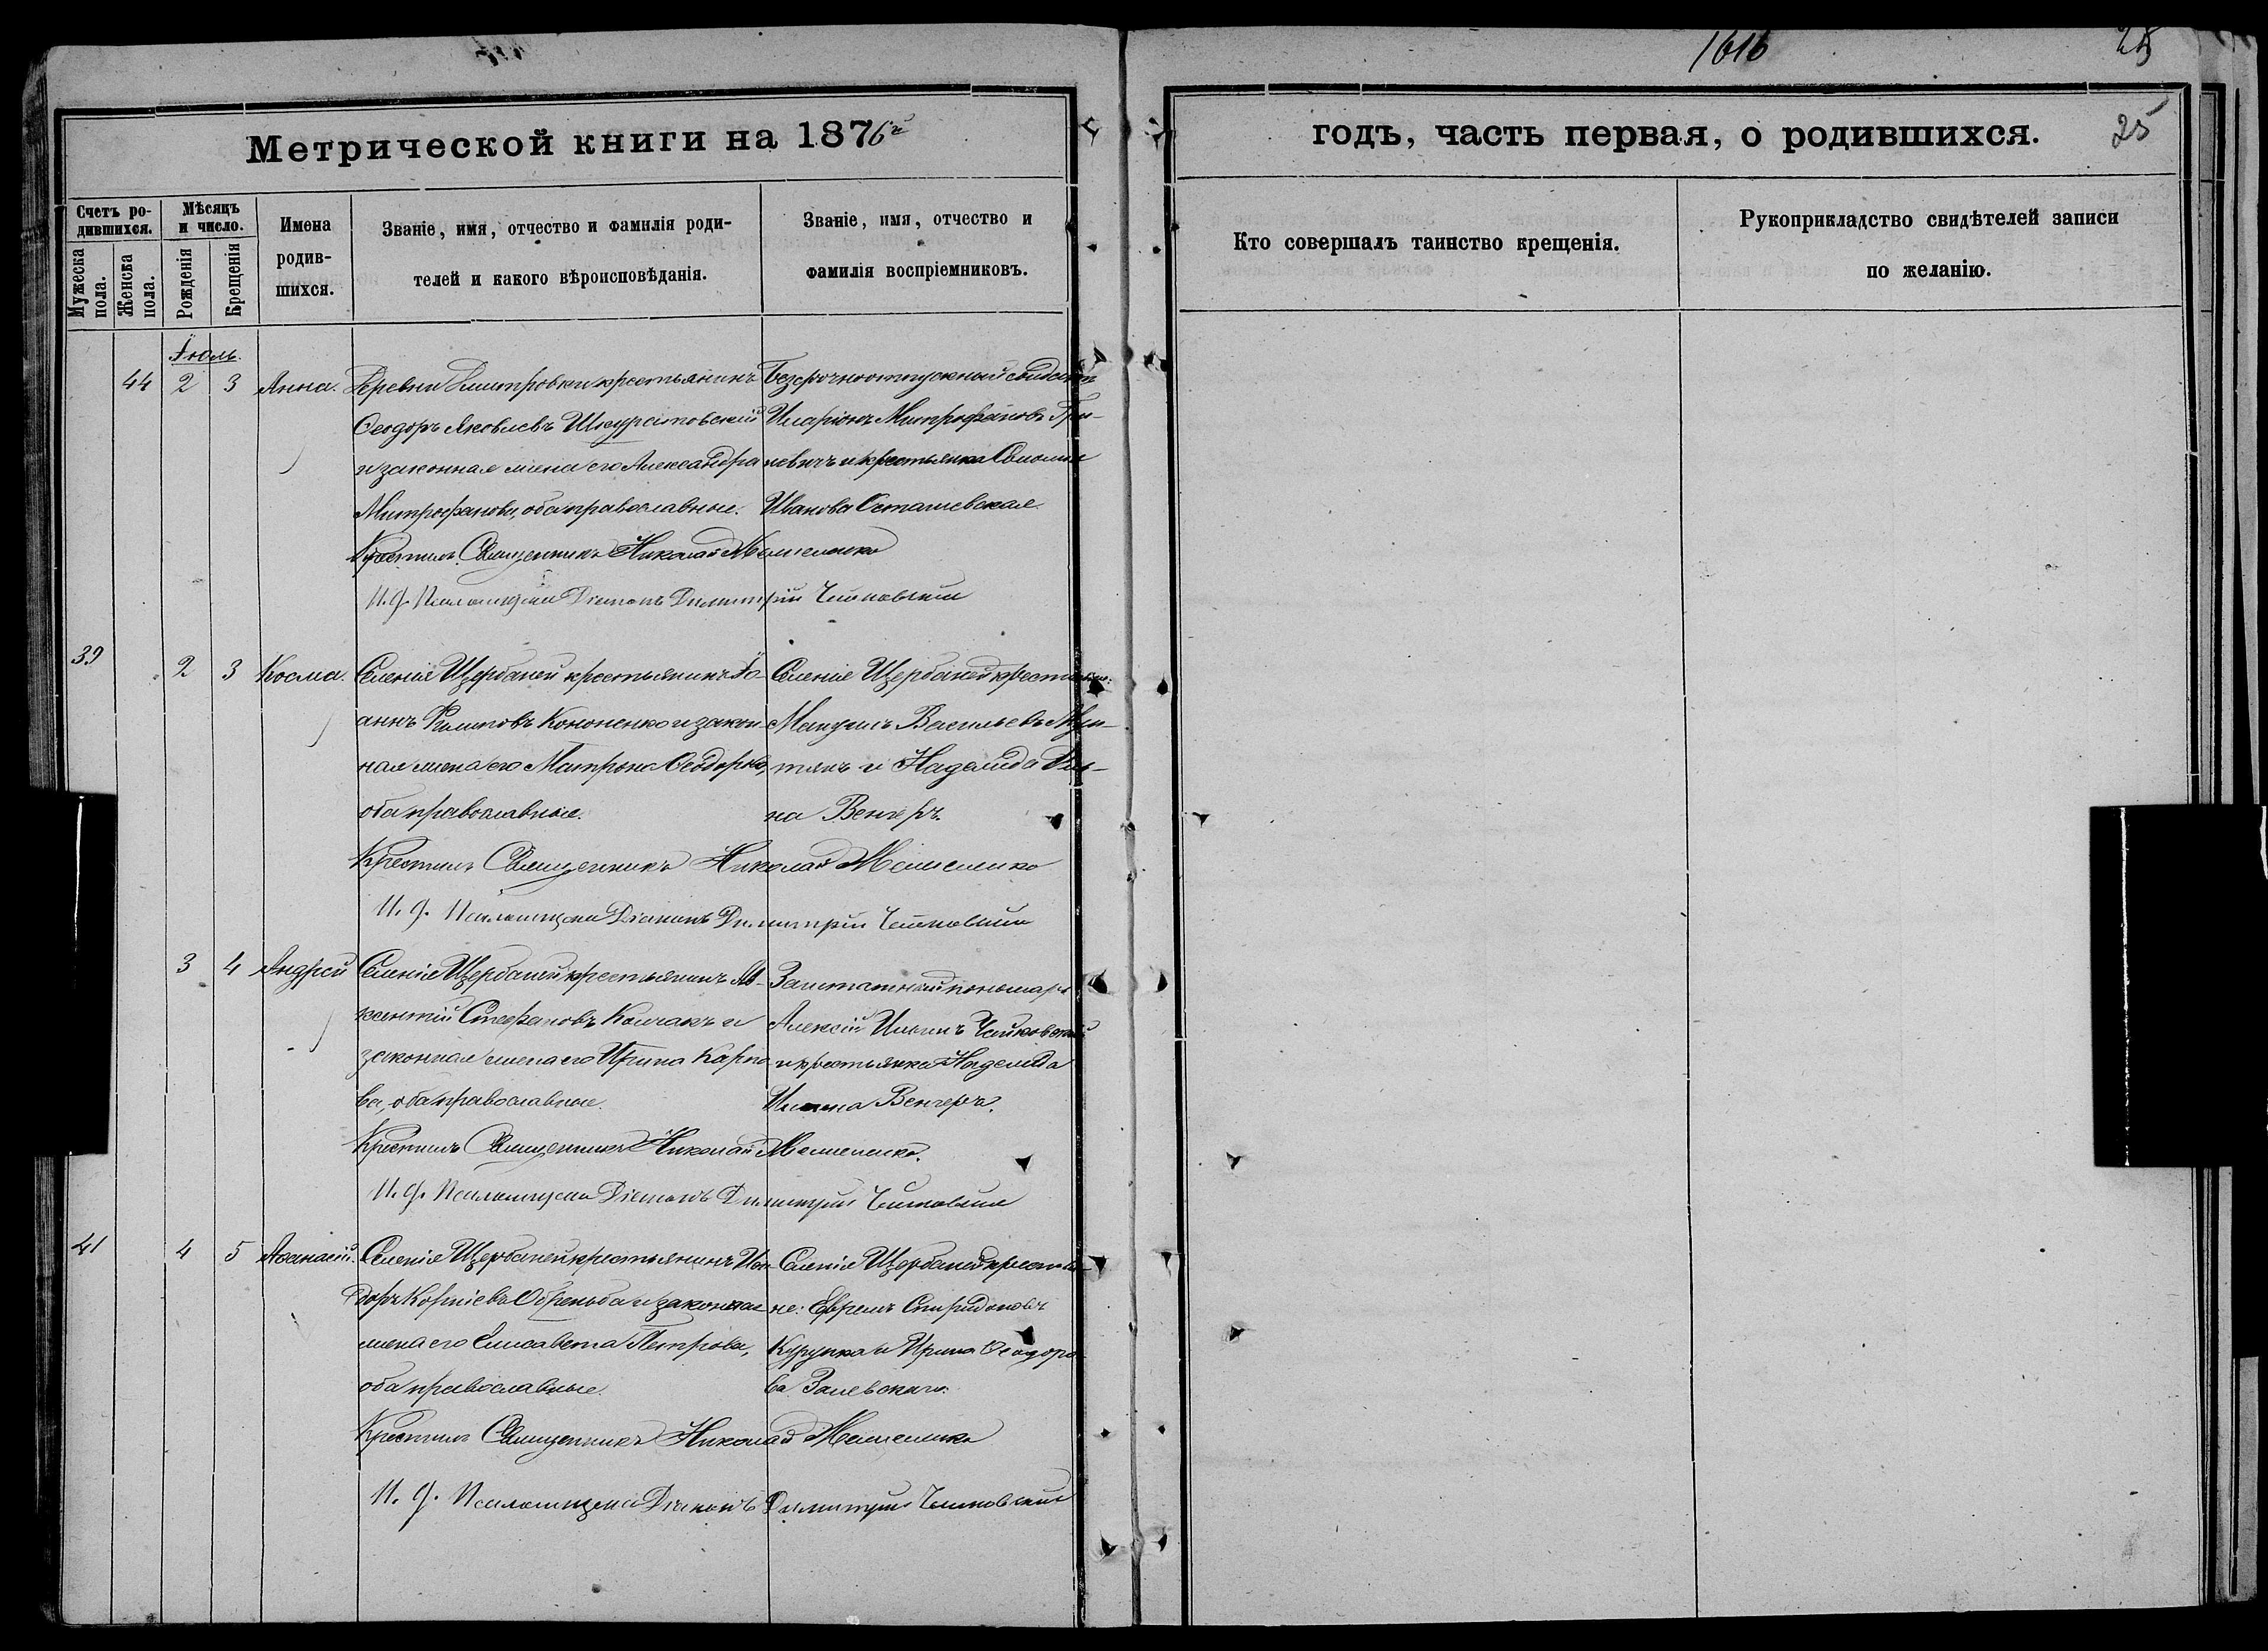 1616
25
Метрической книги на 1876 г
годъ, часть первая, о родившихся.
25
Счетъ ро-
дившихся.
Мужеска
пола.
Женска
пола.
Мѣсяцъ
и число.
Рожденія
Крещенія
Имена
родив-
шихся.
Званіе, имя, отчество и фамилія роди-
телей и какого вѣроисповѣданія.
Званіе, имя, отчество и
фамилія воспріемниковъ.
Кто совершалъ таинство крещенія.
Рукоприкладство свидѣтелей записи
по желанію.
Іюль.
44 2 3 Анна.
Деревни крестьянинъ
Ѳеодоръ Яковлевъ Шкуратовскій
и законная жена его Александра
Митрофанова, оба православные.
Безсрочноотпускный солдатъ
Иларіонъ Митрофановъ Гри-
невичъ и крестьянка
Иванова Осташевская.
Крестилъ Священникъ Николай
И. д. Псаломщика Діаконъ Димитрій Чайковскій
39 2 3 Косма.
Селенія Щербаней крестьянинъ Іо-
аннъ Филиповъ Кононенко и закон-
ная жена его Матрона Ѳеодорова,
оба православные.
Селенія Щербаней крестьяне:
Васильевъ
и Надежда Иль-
на Венгеръ.
Крестилъ Священникъ Николай
И. д. Псаломщика Діаконъ Димитрій Чайковскій
3 4 Андрей
Селенія Щербаней крестьянинъ Ав-
ксентій Стефановъ Колчакъ и
законная жена его Ирина Карпо-
ва, оба православные.
Заштатный пономарь
Алексій Ильинъ Чайковскій
и крестьянка Надежда
Ильина Венгеръ.
Крестилъ Священникъ Николай
И. д. Псаломщика Діаконъ Димитрій Чайковскій
41 4 5 Аѳанасій.
Селенія Щербаней крестьянинъ Иси-
доръ Корніевъ и законная
жена его Елисавета Петрова,
оба православные.
Селенія Щербаней крестья-
не: Ефремъ Спиридоновъ
и Ирина Ѳеодоро-
ва
Крестилъ Священникъ Николай
И. д. Псаломщика Діаконъ Димитрій Чайковскій